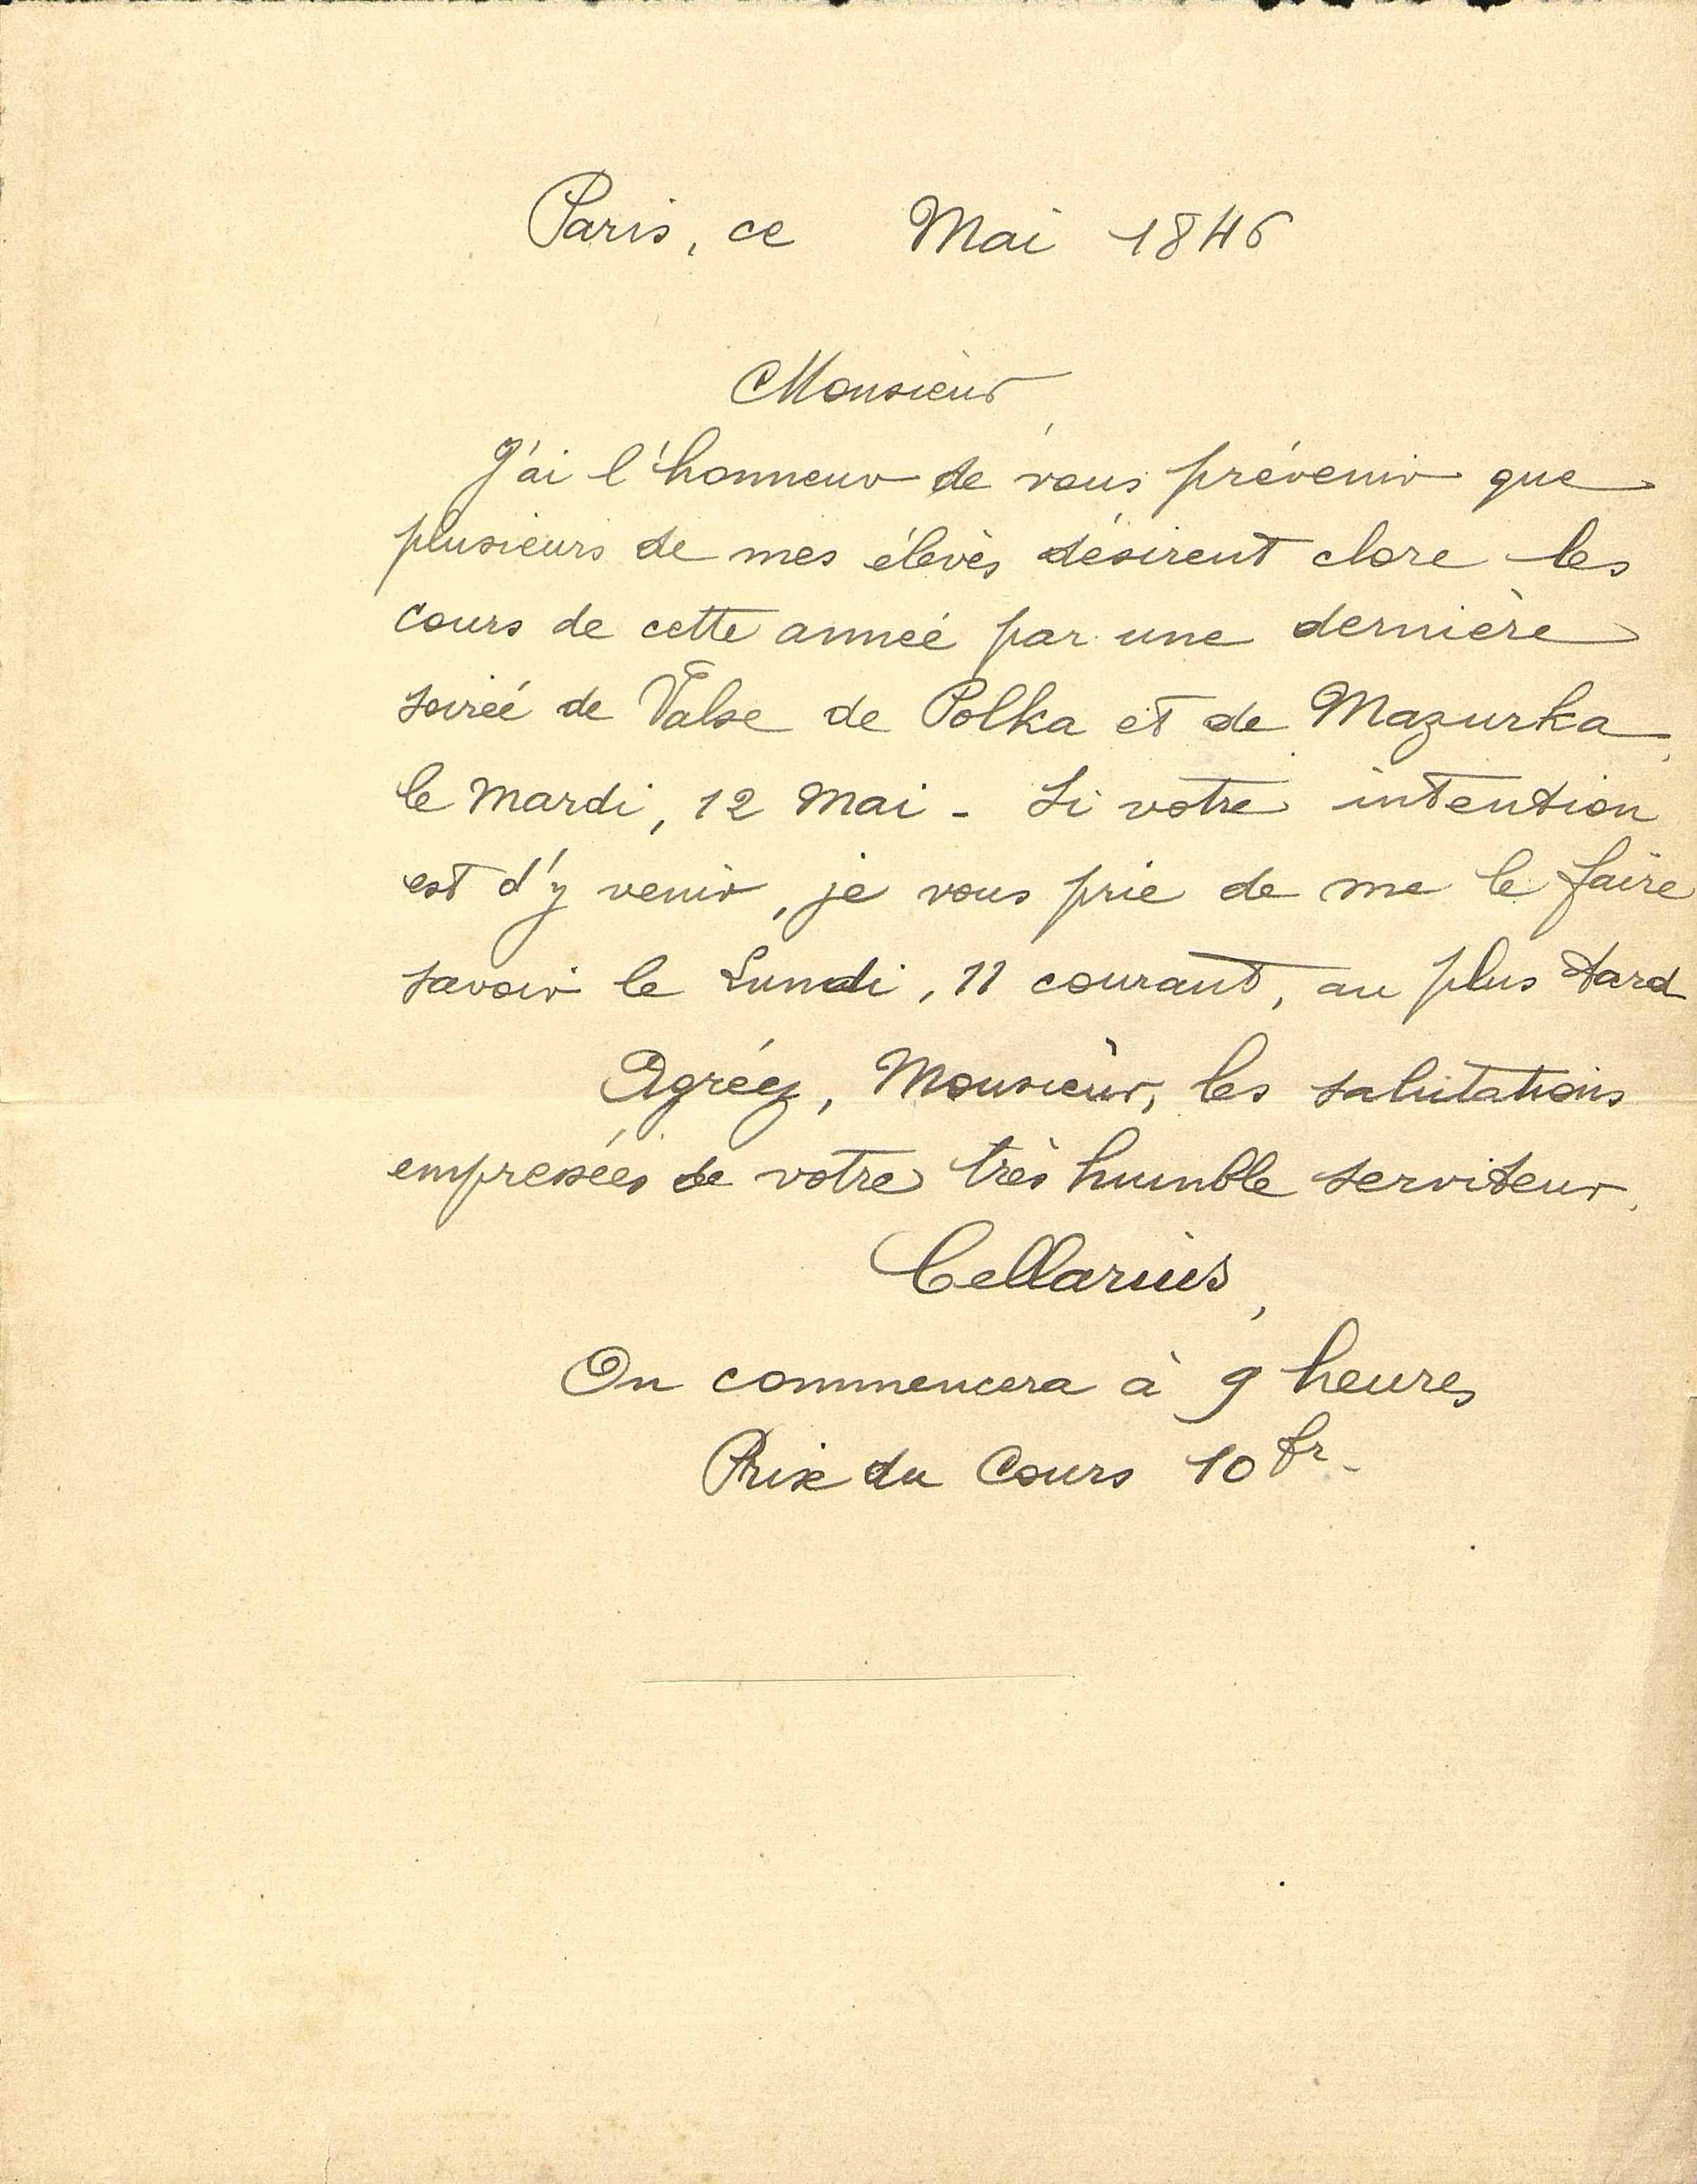 Paris, ce Mai 1846
Monsieur
J'ai l'honneur de vous prévenir que
plusieurs de mes élèves désirent clore les
cours de cette année par une dernière
soirée de Valse de Polka et de Mazurka,
le Mardi, 12 Mai - Si votre intention
est d'y venir, je vous prie de me le faire
savoir le Lundi, 11 courant, au plus tard
Agréez, Monsieur, les salutations
empressées de votre très humble serviteur,
Cellarius,
On commencera à 9 heures
Prix du Cours 10 fr.